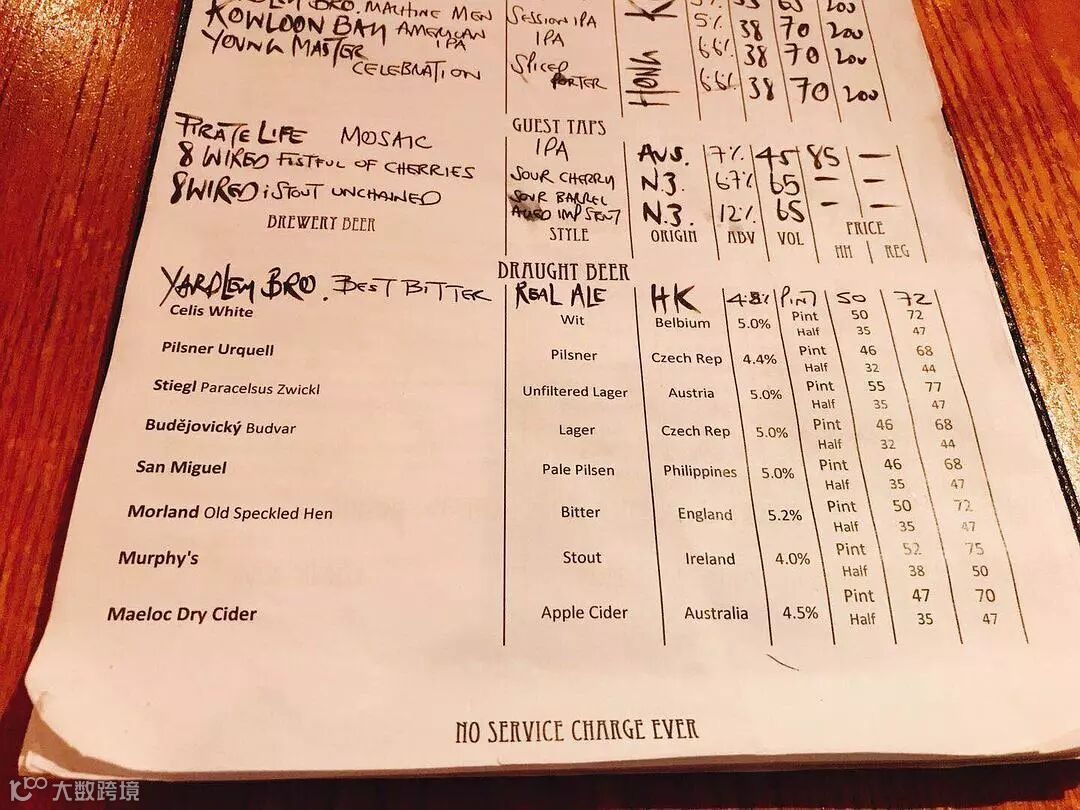 BRO. MACHINE MEN SESSION IPA 5%
KOWLOON BAY AMERICAN IPA IPA 5% 38 70 200
YOUNG MASTER CELEBRATION SPICED PORTER HONG 6.6% 38 70 200
6.6% 38 70 200
GUEST TAPS
PIRATE LIFE MOSAIC IPA AUS. 7% 45 85 —
8 WIRED FISTFUL OF CHERRIES SOUR CHERRY N.Z. 6.7% 65 — —
8 WIRED iSTOUT UNCHAINED SOUR BARREL AGED IMP STOUT N.Z. 12% 65 — —
BREWERY BEER STYLE ORIGIN ABV VOL PRICE
HH REG
DRAUGHT BEER
YARDLEY BRO. BEST BITTER REAL ALE HK 4.8% PINT 50 72
Celis White Wit Belbium 5.0% Pint 50 72
Half 35 47
Pilsner Urquell Pilsner Czech Rep 4.4% Pint 46 68
Half 32 44
Stiegl Paracelsus Zwickl Unfiltered Lager Austria 5.0% Pint 55 77
Half 35 47
Budějovický Budvar Lager Czech Rep 5.0% Pint 46 68
Half 32 44
San Miguel Pale Pilsen Philippines 5.0% Pint 46 68
Half 35 47
Morland Old Speckled Hen Bitter England 5.2% Pint 50 72
Half 35 47
Murphy's Stout Ireland 4.0% Pint 52 75
Half 38 50
Maeloc Dry Cider Apple Cider Australia 4.5% Pint 47 70
Half 35 47
NO SERVICE CHARGE EVER
大数跨境